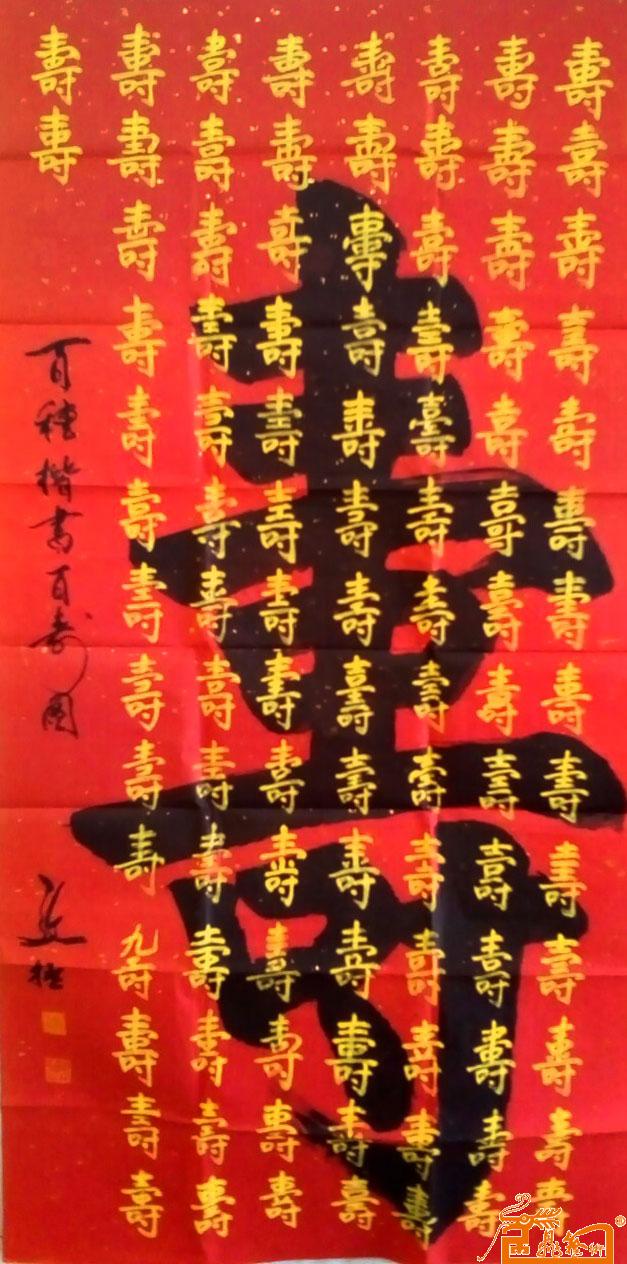 壽
壽壽壽壽壽壽壽壽壽壽壽壽壽壽
壽壽壽壽壽壽壽壽壽壽壽壽壽壽
壽壽壽壽壽壽壽壽壽壽壽壽壽壽
壽壽壽壽壽壽壽壽壽壽壽壽壽壽
壽壽壽壽壽壽壽壽壽壽壽壽壽壽
壽壽壽壽壽壽壽壽壽壽壽壽壽壽
壽壽壽壽壽壽壽壽壽壽壽壽壽壽
壽壽
百種楷書百壽圖